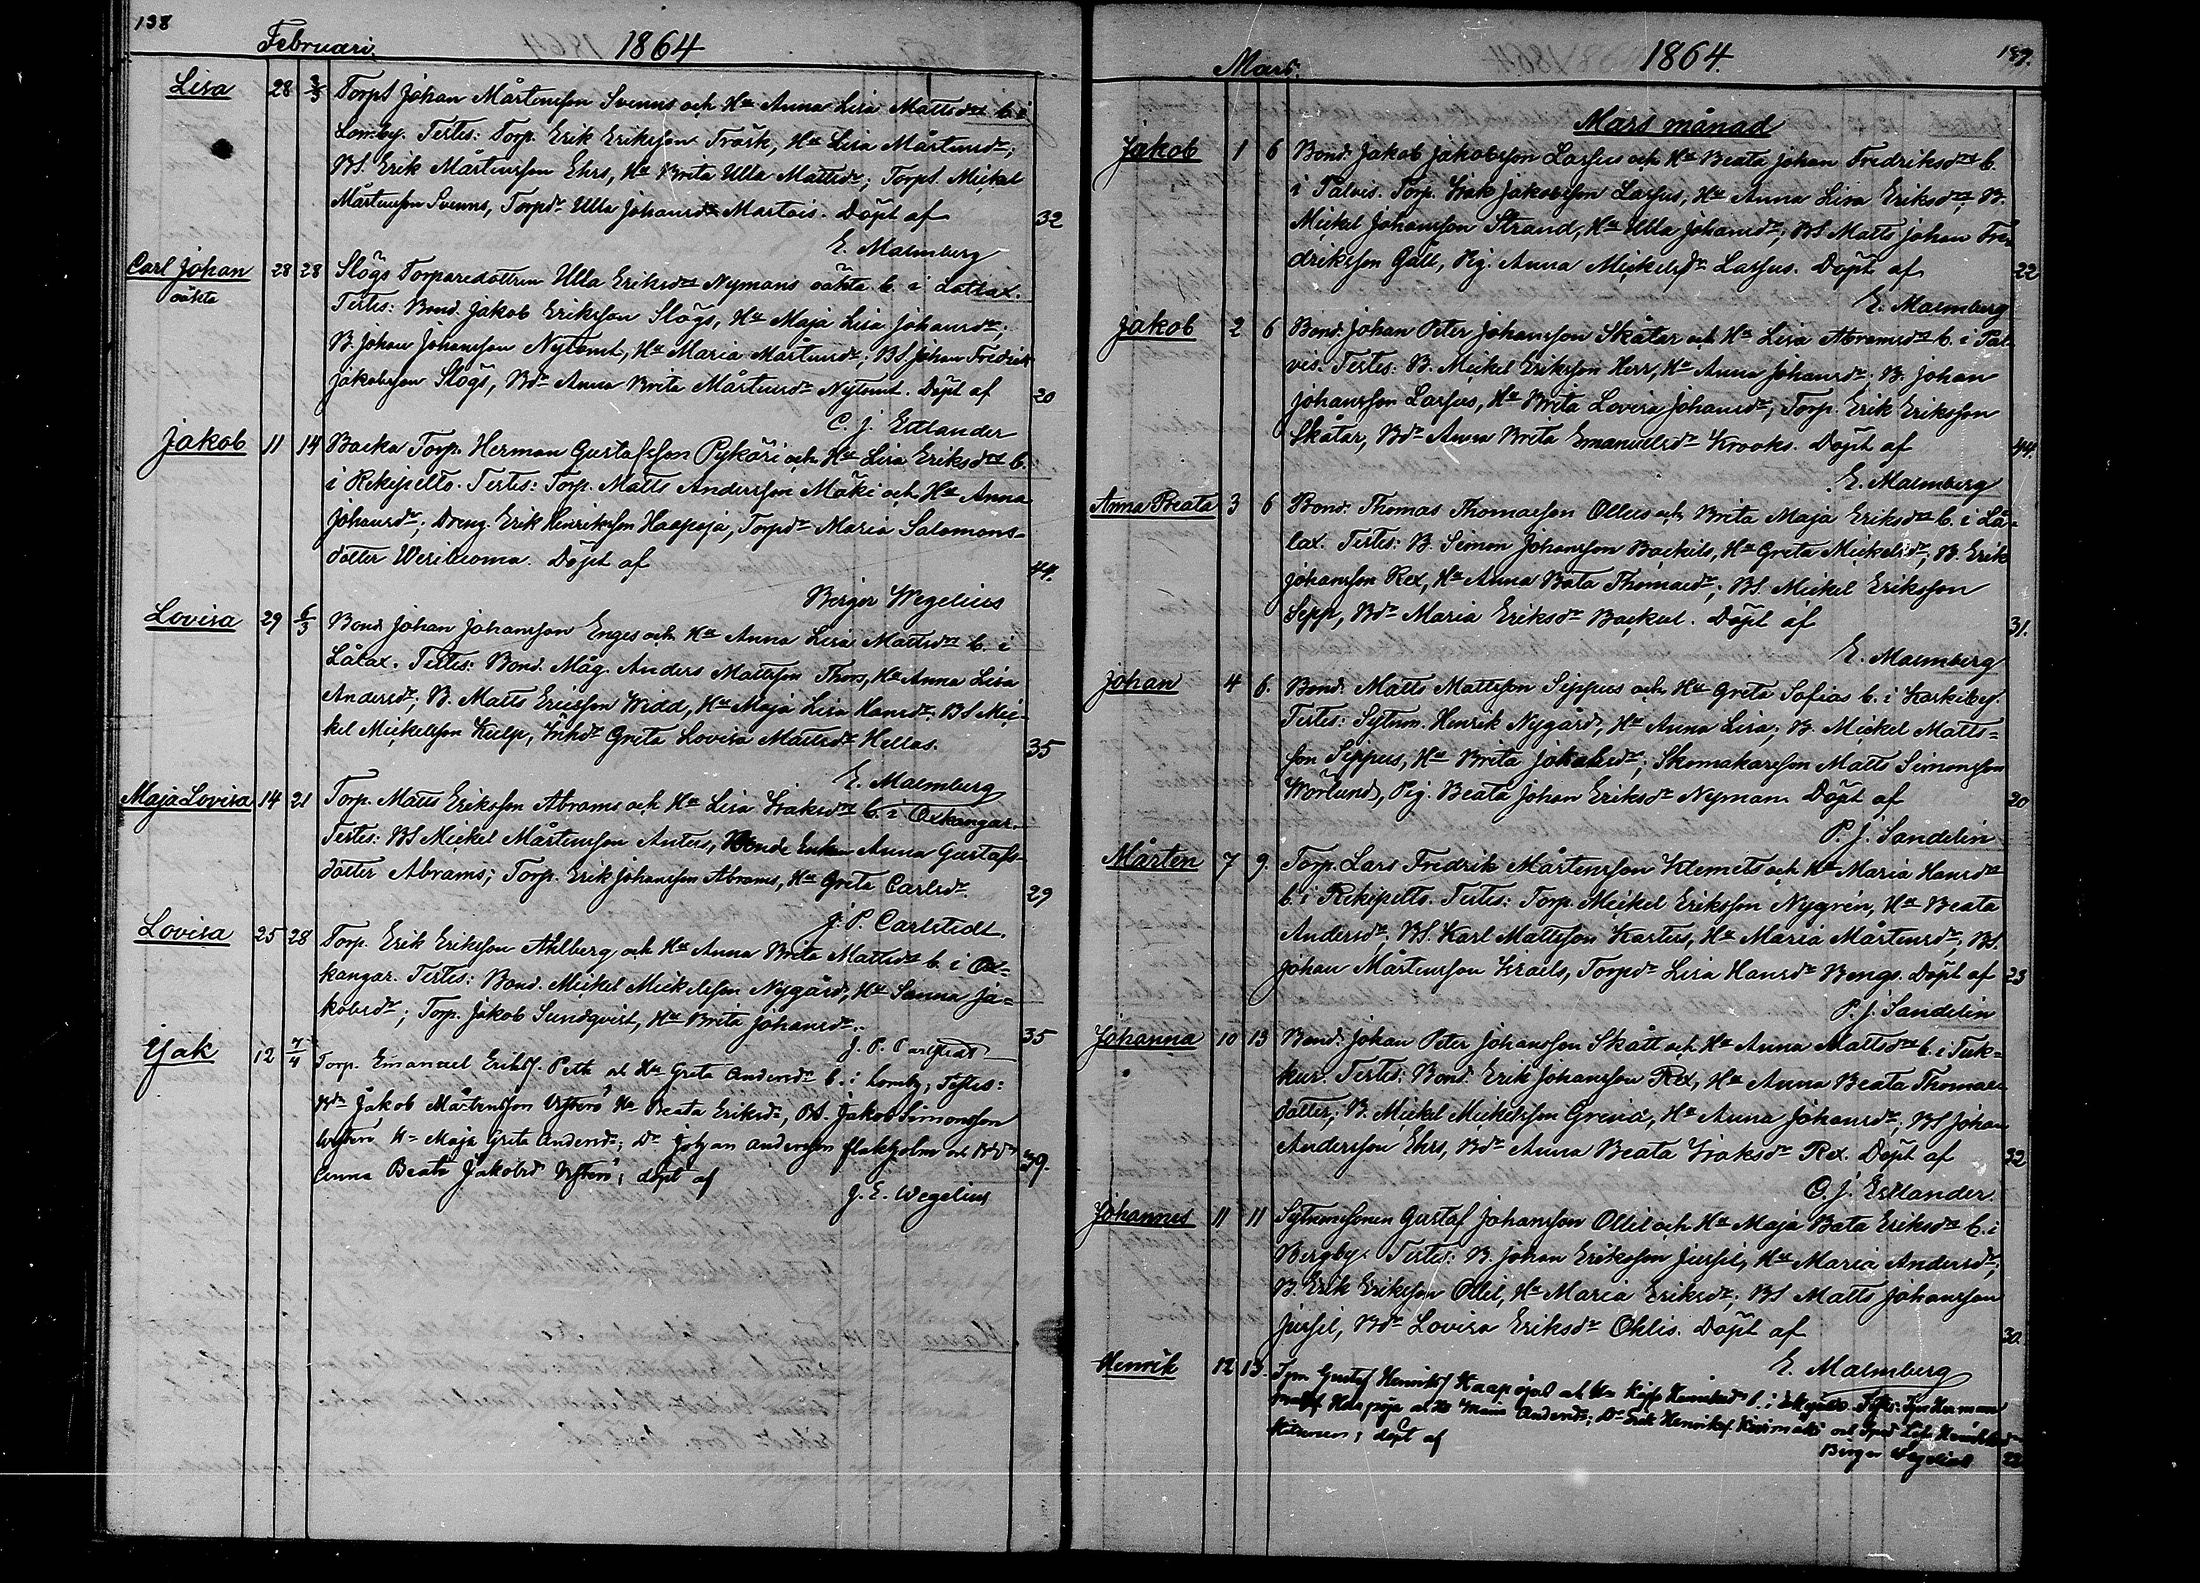 138
Februari. 1864
Lisa 28 3/3 Torps. Johan Mårtensson Svenns och Hu Anna Lisa Mattsdrs b. i
Lomby. Testes: Torp. Erik Eriksson Träsk, Hu Lisa Mårtensdr;
BS. Erik Mårtensson Ehrs, Hu Brita Ulla Mattsdr; Torps. Mickel
Mårtensson Svenns, Torpdr Ulla Johansdr Martois. Döpt af 32
E. Malmberg
Carl Johan 28 28 Slögs Torparedottren Ulla Eriksdrs Nymans oäkta b. i Lotlax.
oäkta Testes: Bond. Jakob Eriksson Slögs, Hu Maja Lisa Johansdr;
B. Johan Johansson Nytomt, Hu Maria Mårtensdr; BS. Johan Fredrik
Jakobsson Slögs, Bdr Anna Brita Mårtensdr Nytomt. Döpt af 20
C. J. Estlander
Jakob 11 14 Backa Torp. Herman Gustafsson Pykäri och Hu Lisa Eriksdrs b.
i Rekipelto. Testes: Torp. Matts Andersson Mäki och Hu Anna
Johansdr; Dreng. Erik Henriksson Haapoja, Torpdr Maria Salomons=
dotter Werileoma. Döpt af 44.
Birger Wegelius
Lovisa 29 6/3 Bond. Johan Johansson Enges och Hu Anna Lisa Mattsdrs b. i
Lålax. Testes: Bond. Måg. Anders Mattsson Thors, Hu Anna Lisa
Andersdr; B. Matts Ericsson Widd, Hu Maja Lisa Hansdr; BS Mic=
kel Mickelsson Kulp, Inhdr Greta Lovisa Mattsdr Hellas. 35
E. Malmberg
Maja Lovisa 14 21 Torp. Matts Eriksson Abrams och Hu Lisa Isaksdrs b. i Oxkangar.
Testes: BS Mickel Mårtensson Antus, Bonde Enkan Anna Gustafs=
dotter Abrams; Torp. Erik Johansson Abrams, Hu Greta Carlsdr. 29
J. P. Carlstedt.
Lovisa 25 28 Torp. Erik Eriksson Ahlberg och Hu Anna Brita Mattsdrs b. i Ox=
kangar. Testes: Bond. Mickel Mickelsson Nygård, Hu Sanna Ja=
kobsdr; Torp. Jakob Sundqvist, Hu Brita Johansdr. 35
J. P. Carlstedt
Isak 12 7/4 Torp. Emanuel Eriksf. Peth och Hu Greta Andersdrs b. i Lomby; Testes:
Bdn Jakob Mårtensson Westerö Hu Beata Eriksdr, BS. Jakob Simonsson
Westerö Hu Maja Greta Andersdr; Dr. Johan Andersson Flakholm och Bdr
Anna Beata Jakobsdr Westerö; döpt af 39.
J. E. Wegelius
139.
Mars. 1864.
Mars månad
Jakob 1 6 Bond. Jakob Jakobsson Lassus och Hu Beata Johan Fredriksdrs b.
i Palvis. Torp. Isak Jakobsson Lassus, Hu Anna Lisa Eriksdrs; B.
Mickel Johansson Strand, Hu Ulla Johansdr; BS Matts Johan Fre=
driksson Galt, Pig. Anna Mickelsdr Lassus. Döpt af 22
E. Malmberg
Jakob 2 6 Bond. Johan Peter Johansson Skåtar och Hu Lisa Abramsdrs b. i Pal=
vis. Testes: B. Mickel Eriksson Herr, Hu Anna Johansdr; B. Johan
Johansson Lassus, Hu Brita Lovisa Johansdr; Torp. Erik Eriksson
Skåtar, Bdr Anna Brita Emanuelsdr Krooks. Döpt af 44.
E. Malmberg
Anna Beata 3 6 Bond. Thomas Thomasson Ollus och Brita Maja Eriksdrs b. i Lå=
lax. Testes: B. Simon Johansson Backils, Hu Greta Mickelsdr; B. Erik
Johansson Rex, Hu Anna Bata Thomasdr; BS. Mickel Eriksson
Sepp, Bdr Maria Eriksdr Backul. Döpt af 31.
E. Malmberg
Johan 4 6. Bond. Matts Mattsson Sippus och Hu Greta Sofias b. i Karkiby.
Testes: Sytnm. Henrik Nygård, Hu Anna Lisa; B. Mickel Matts=
son Sippus, Hu Brita Jakobsdr; Skomakarsson Matts Simonsson
Wörlund, Pig. Beata Johan Eriksdr Nyman. Döpt af 20
P. J. Sandelin
Mårten 7 9. Torp. Lars Fredrik Mårtensson Klemets och Hu Maria Hansdrs
b. i Rekipelto. Testes: Torp. Mickel Eriksson Nygrén, Hu Beata
Andersdr; BS. Karl Mattsson Kartus, Hu Maria Mårtensdr; BS.
Johan Mårtensson Israels, Torpdr Lisa Hansdr Bengs. Döpt af 23
P. J. Sandelin
Johanna 10 13 Bond. Johan Peter Johansson Skått och Hu Anna Mattsdrs b. i Tuk=
kur. Testes: Bond. Erik Johansson Rex, Hu Anna Beata Thomas=
dotter; B. Mickel Mickelsson Grevis, Hu Anna Johansdr; BS Johan
Andersson Ehrs, Bdr Anna Beata Isaksdr Rex. Döpt af 32
C. J. Estlander.
Johannes 11 11 Sytnmssonen Gustaf Johansson Ollil och Hu Maja Bata Eriksdrs b. i
Bergby. Testes: B. Johan Eriksson Jussil, Hu Maria Andersdr;
B. Erik Eriksson Ollil, Hu Maria Eriksdr; BS Matts Johansson
Jussil, Bdr Lovisa Eriksdr Ohlis. Döpt af 30.
E. Malmberg
Henrik 12 13. Tpn Gustaf Henriksf Haapojas och Hu Kajsa Henriksdrs b. i Testes: Tpn Herman
Haapoja och Hu Maria Andersdr; Dr Erik Henriksf. Kivimäki och
döpt af
Birger Wegelius 22